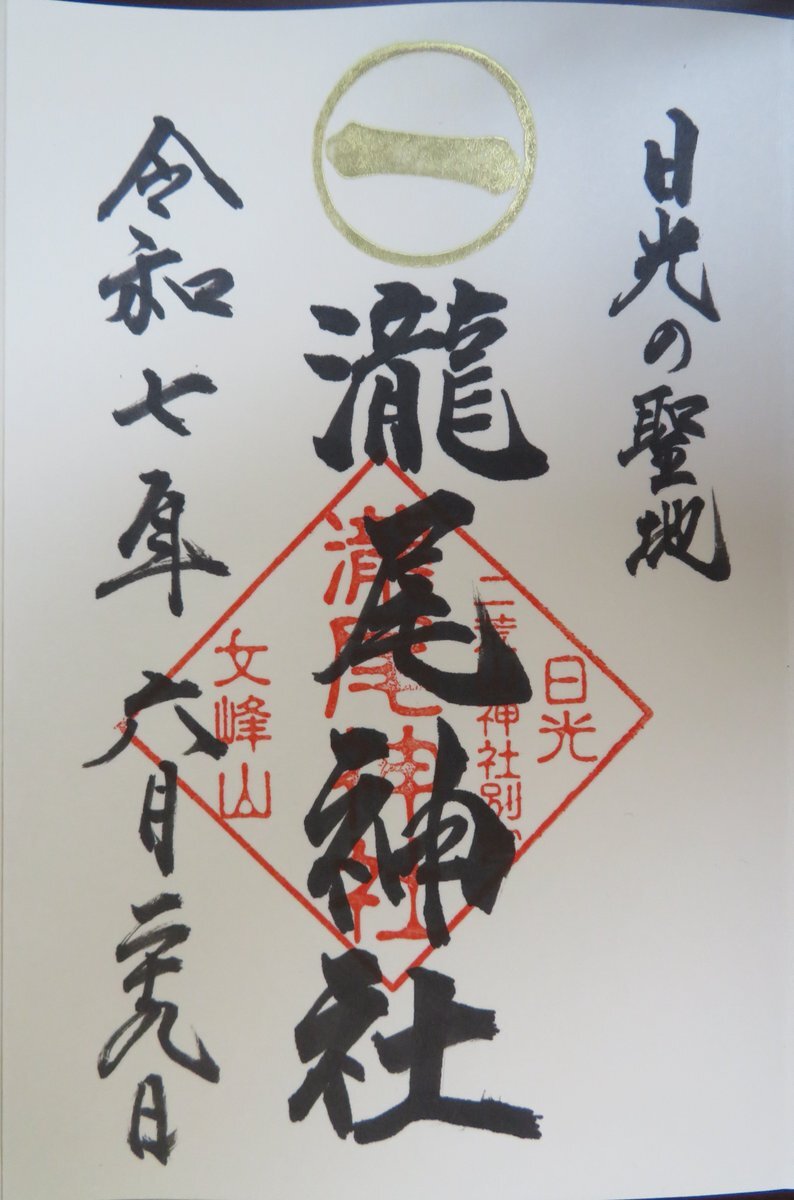 日光の聖地
一
瀧尾神社
日光
二荒山神社別宮
瀧尾神社
女峰山
令和七年六月二十九日